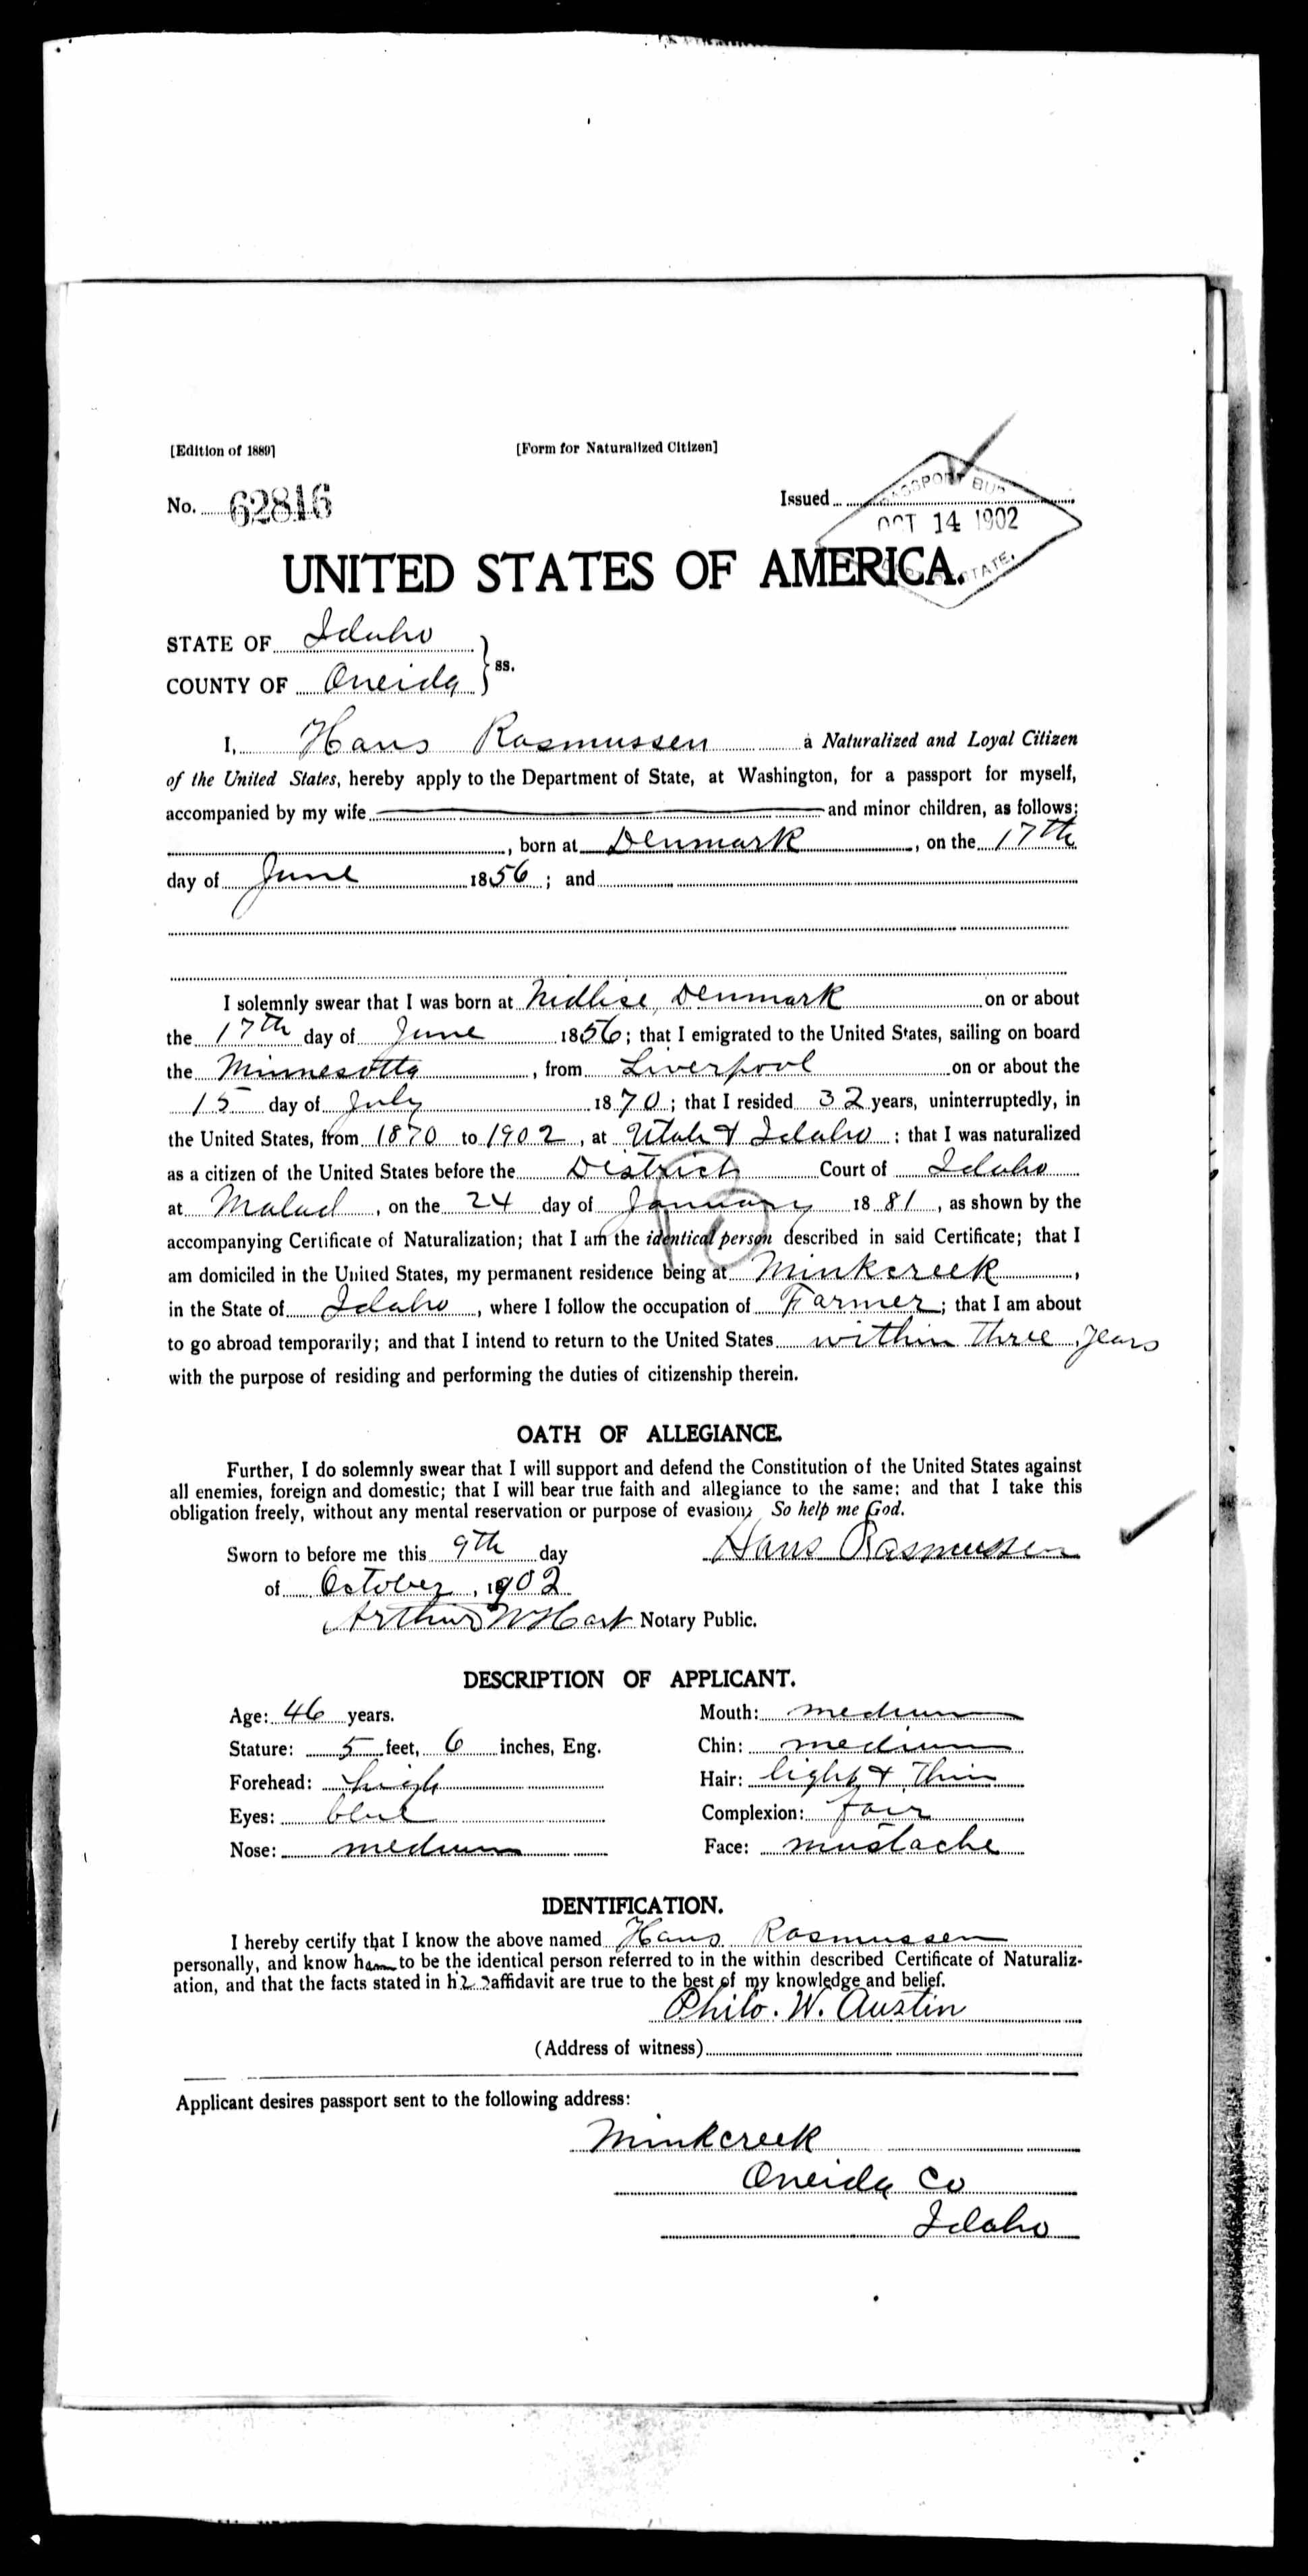 [Edition of 1889]
[Form for Naturalized Citizen]
No. 62816
Issued
PASSPORT BU
OCT 14 1902
STATE.
UNITED STATES OF AMERICA.
STATE OF Idaho
COUNTY OF Oneida
ss.
I, Hans Rasmussen a Naturalized and Loyal Citizen
of the United States, hereby apply to the Department of State, at Washington, for a passport for myself,
accompanied by my wife and minor children, as follows:
, born at Denmark , on the 17th
day of June 1856 ; and
I solemnly swear that I was born at Denmark on or about
the 17th day of June 1856; that I emigrated to the United States, sailing on board
the Minnesotta , from Liverpool on or about the
15 day of July 1870 ; that I resided 32 years, uninterruptedly, in
the United States, from 1870 to 1902 , at Utah & Idaho : that I was naturalized
as a citizen of the United States before the District Court of Idaho
at Malad , on the 24 day of January 1881 , as shown by the
accompanying Certificate of Naturalization; that I am the identical person described in said Certificate; that I
am domiciled in the United States, my permanent residence being at Minkcreek ,
in the State of Idaho , where I follow the occupation of Farmer ; that I am about
to go abroad temporarily; and that I intend to return to the United States within three years
with the purpose of residing and performing the duties of citizenship therein.
OATH OF ALLEGIANCE.
Further, I do solemnly swear that I will support and defend the Constitution of the United States against
all enemies, foreign and domestic; that I will bear true faith and allegiance to the same; and that I take this
obligation freely, without any mental reservation or purpose of evasion; So help me God.
Hans Rasmussen
Sworn to before me this 9th day
of October , 1902
Arthur W Hart Notary Public.
DESCRIPTION OF APPLICANT.
Age: 46 years.
Mouth: medium
Stature: 5 feet, 6 inches, Eng.
Chin: medium
Forehead: high
Hair: light & thin
Eyes: blue
Complexion: fair
Nose: medium
Face: mustache
IDENTIFICATION.
I hereby certify that I know the above named Hans Rasmussen
personally, and know him to be the identical person referred to in the within described Certificate of Naturaliz-
ation, and that the facts stated in his affidavit are true to the best of my knowledge and belief.
Philo. W. Austin
(Address of witness)
Applicant desires passport sent to the following address:
Minkcreek
Oneida Co
Idaho